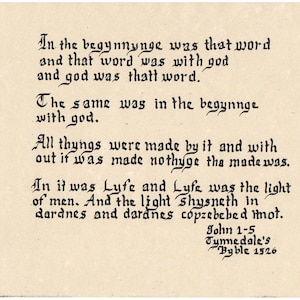 In the begynnynge was that word
and that word was with god
and god was thatt word.
The same was in the begynnge
with god.
All thyngs were made by it and with
out it was made nothyge tha made was.
In it was Lyfe and Lyfe was the light
of men. And the light shysneth in
dardnes and dardnes copzebebed itnot.
John 1-5
Tynnedale's
Byble 1526